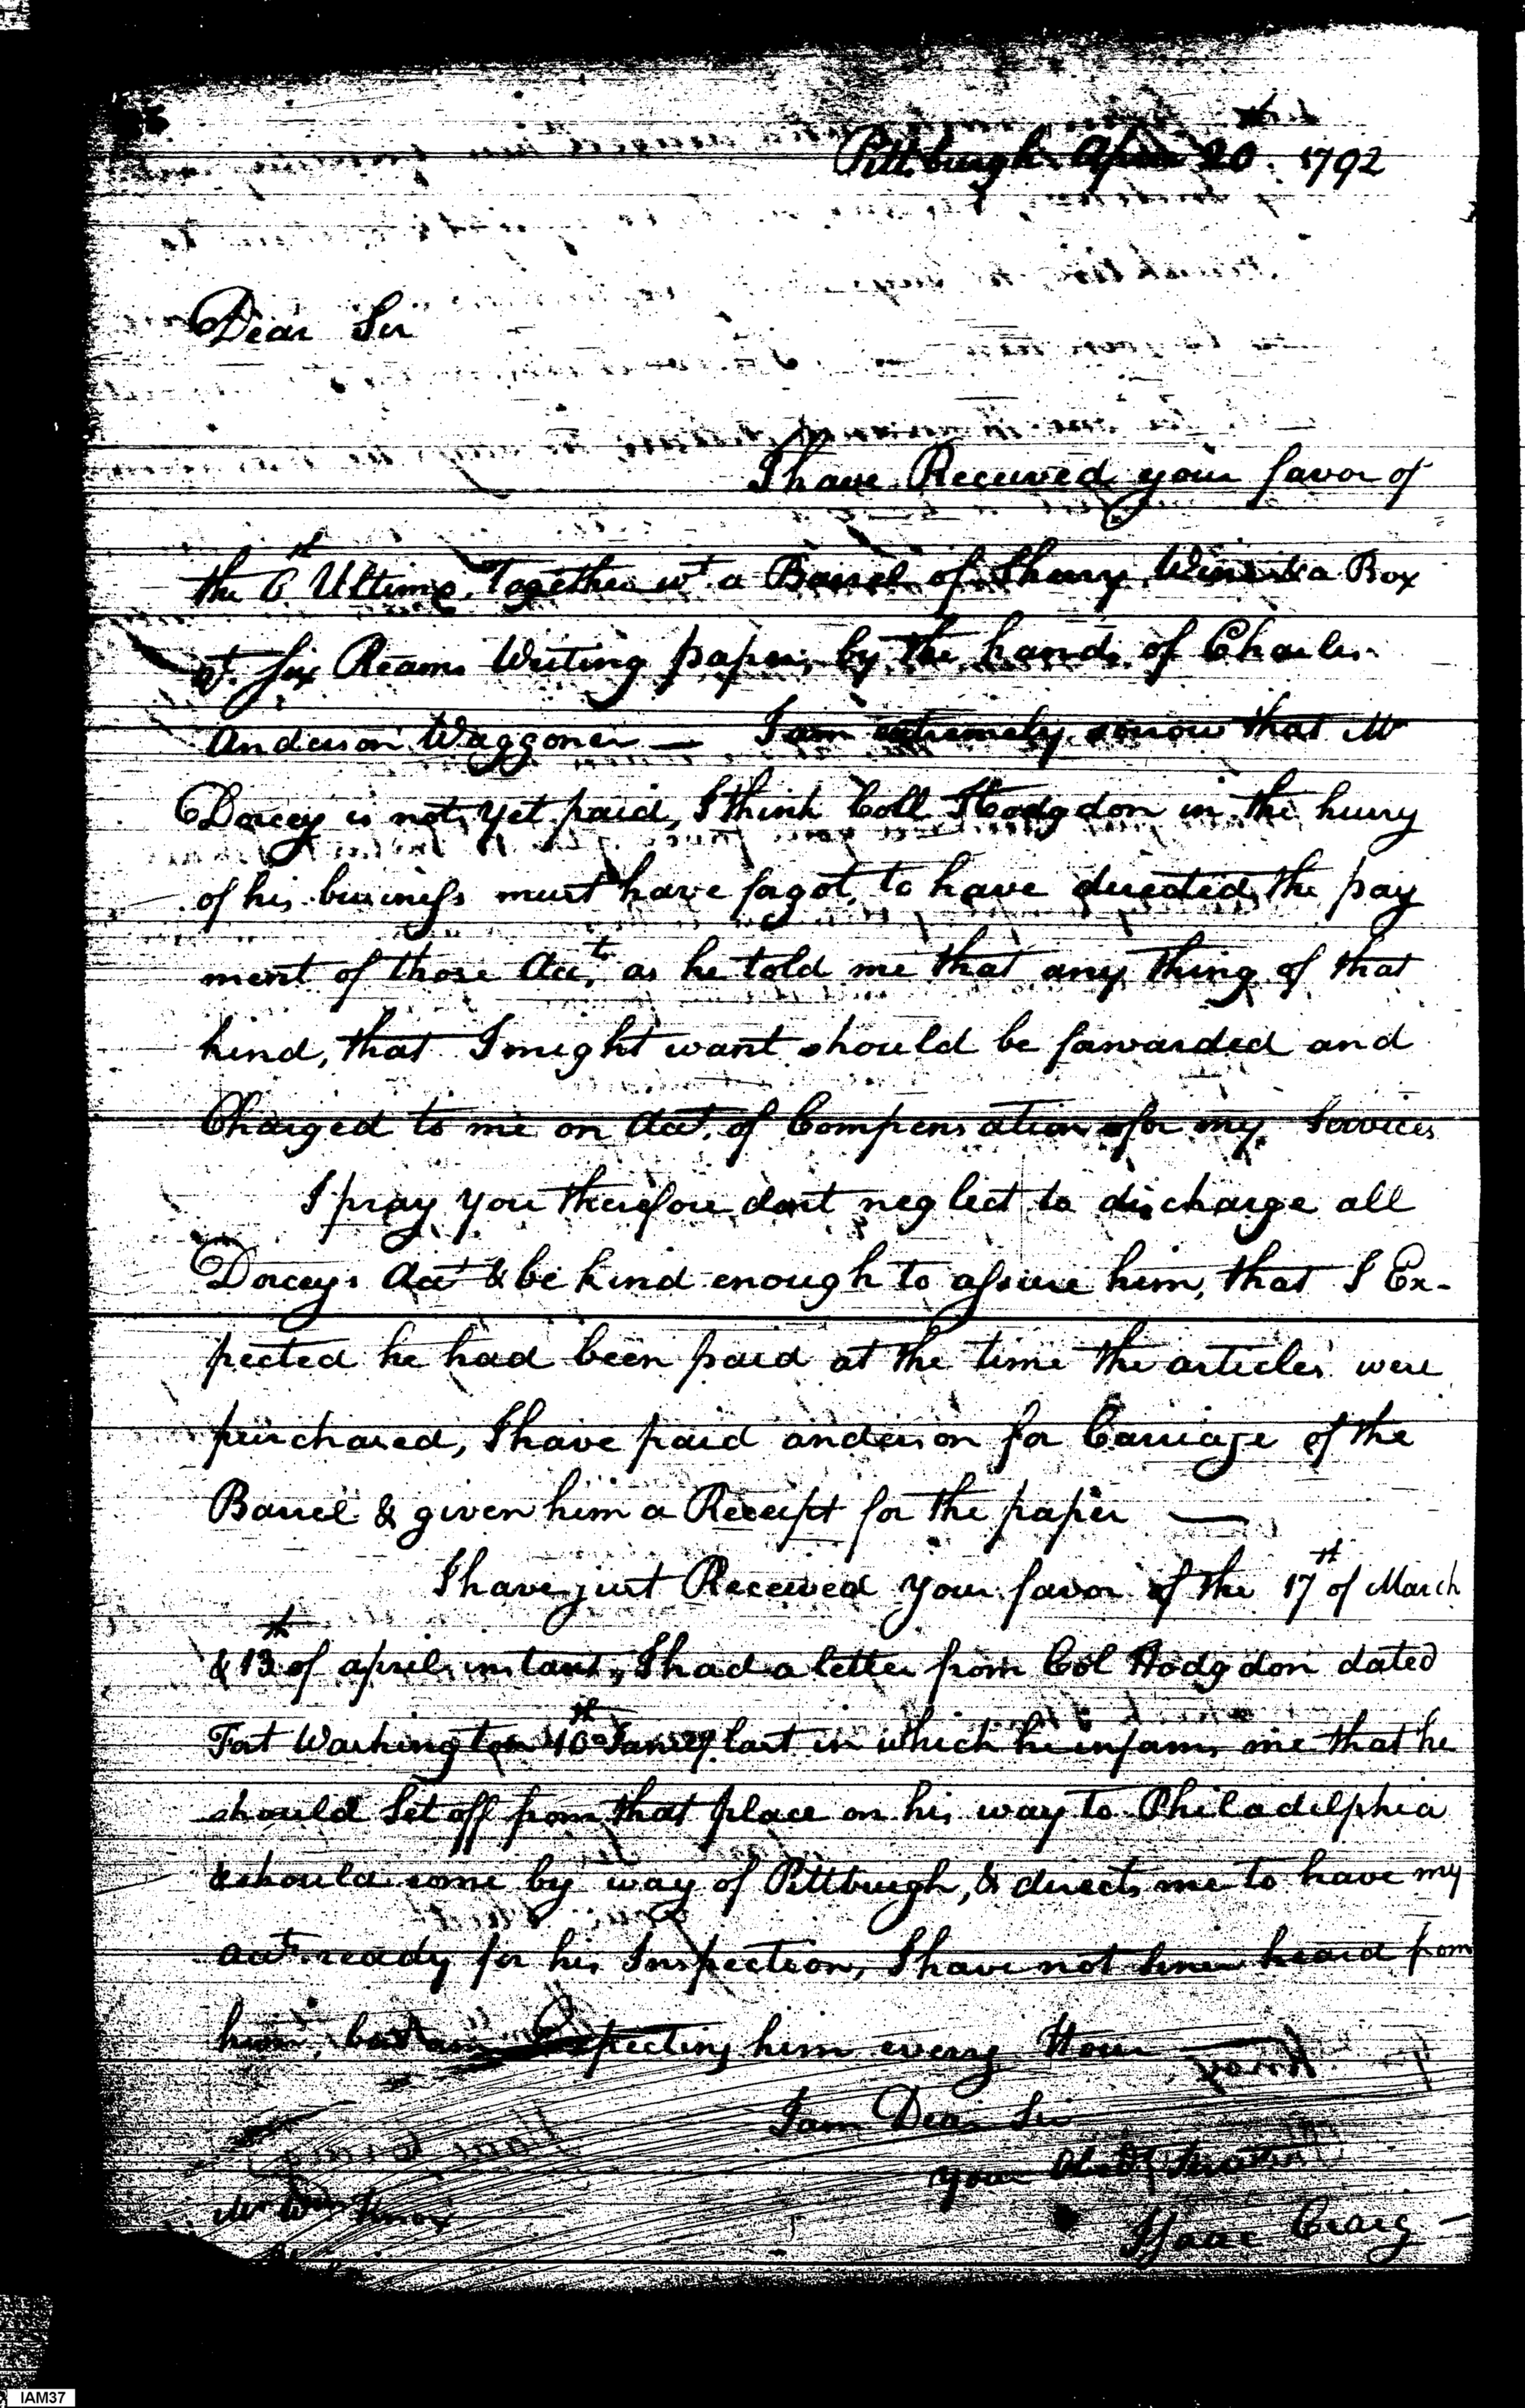 Pittsburgh April 20th 1792
Dear Sir
I have Received your favor of
the 6th Ultimo, Together wt a Barrel of Sherry Wine & a Box
wt Six Reams Writing paper, by the hands of Charles
Anderson Waggoner — I am extremely sorrow that Mr
Dorcey is not yet paid, I think Coll Hodgdon in the hurry
of his business must have forgot, to have directed the pay
ment of those Accts as he told me that any thing of that
kind, that I might want should be forwarded and
Charged to me on Acct. of Compensation for my Services
I pray you therefore dont neglect to discharge all
Dorceys Acct & be kind enough to assure him, that I Ex-
pected he had been paid at the time the articles were
purchased, I have paid anderson for Carriage of the
Barrel & given him a Receipt for the paper —
I have just Received your favor of the 17th of March
& 13th of april instant, I had a letter from Col Hodgdon dated
Fort Washington 10th Janury last in which he informs me that he
should Set off from that place on his way to Philadelphia
& should come by way of Pittburgh, & directs me to have my
accts ready for his Inspection, I have not since heard from
him, but am Expecting him every Hour —
I am Dear Sir
your Obedt Servant
Isaac Craig —
Mr Wm Knox
IAM37